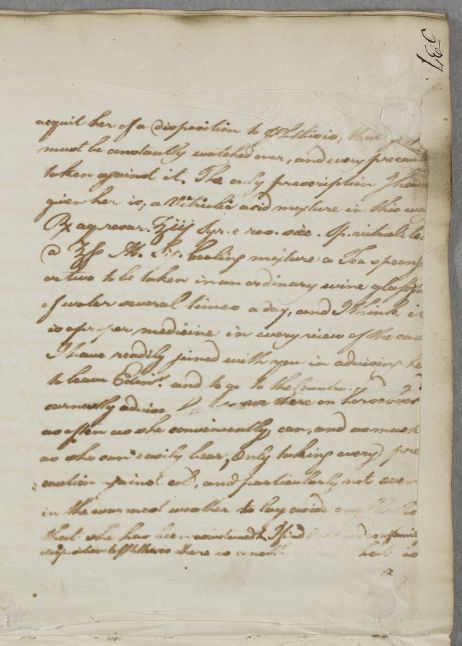 337
acquit her of a disposition to Phthisis, that
must be constantly watched over, and every precauti
taken against it. The only prescription I have
given her is, a vitriolic acid mixture in this way
℞ aq. rosar. ℥iij Syr. e ros. sicc. Sp. vitriol. te
a ℥ss M. Sig. Cooling mixture: a Tea spoonf
or two to be taken in an ordinary wine glassf
of water several times a day, and I think it
is a proper medicine in every view of the case
I have readily joined with you in advising he
to leave Edinr. and to go to the Country and
earnestly advise there on horseback
as often as she conveniently can, and as much
as she can easily bear, Only taking every pre
caution against cold, and particularly not even
in the warmest weather to lay aside any
that she has been accustomed. I find
disposition to Phthisis there is another that is
a